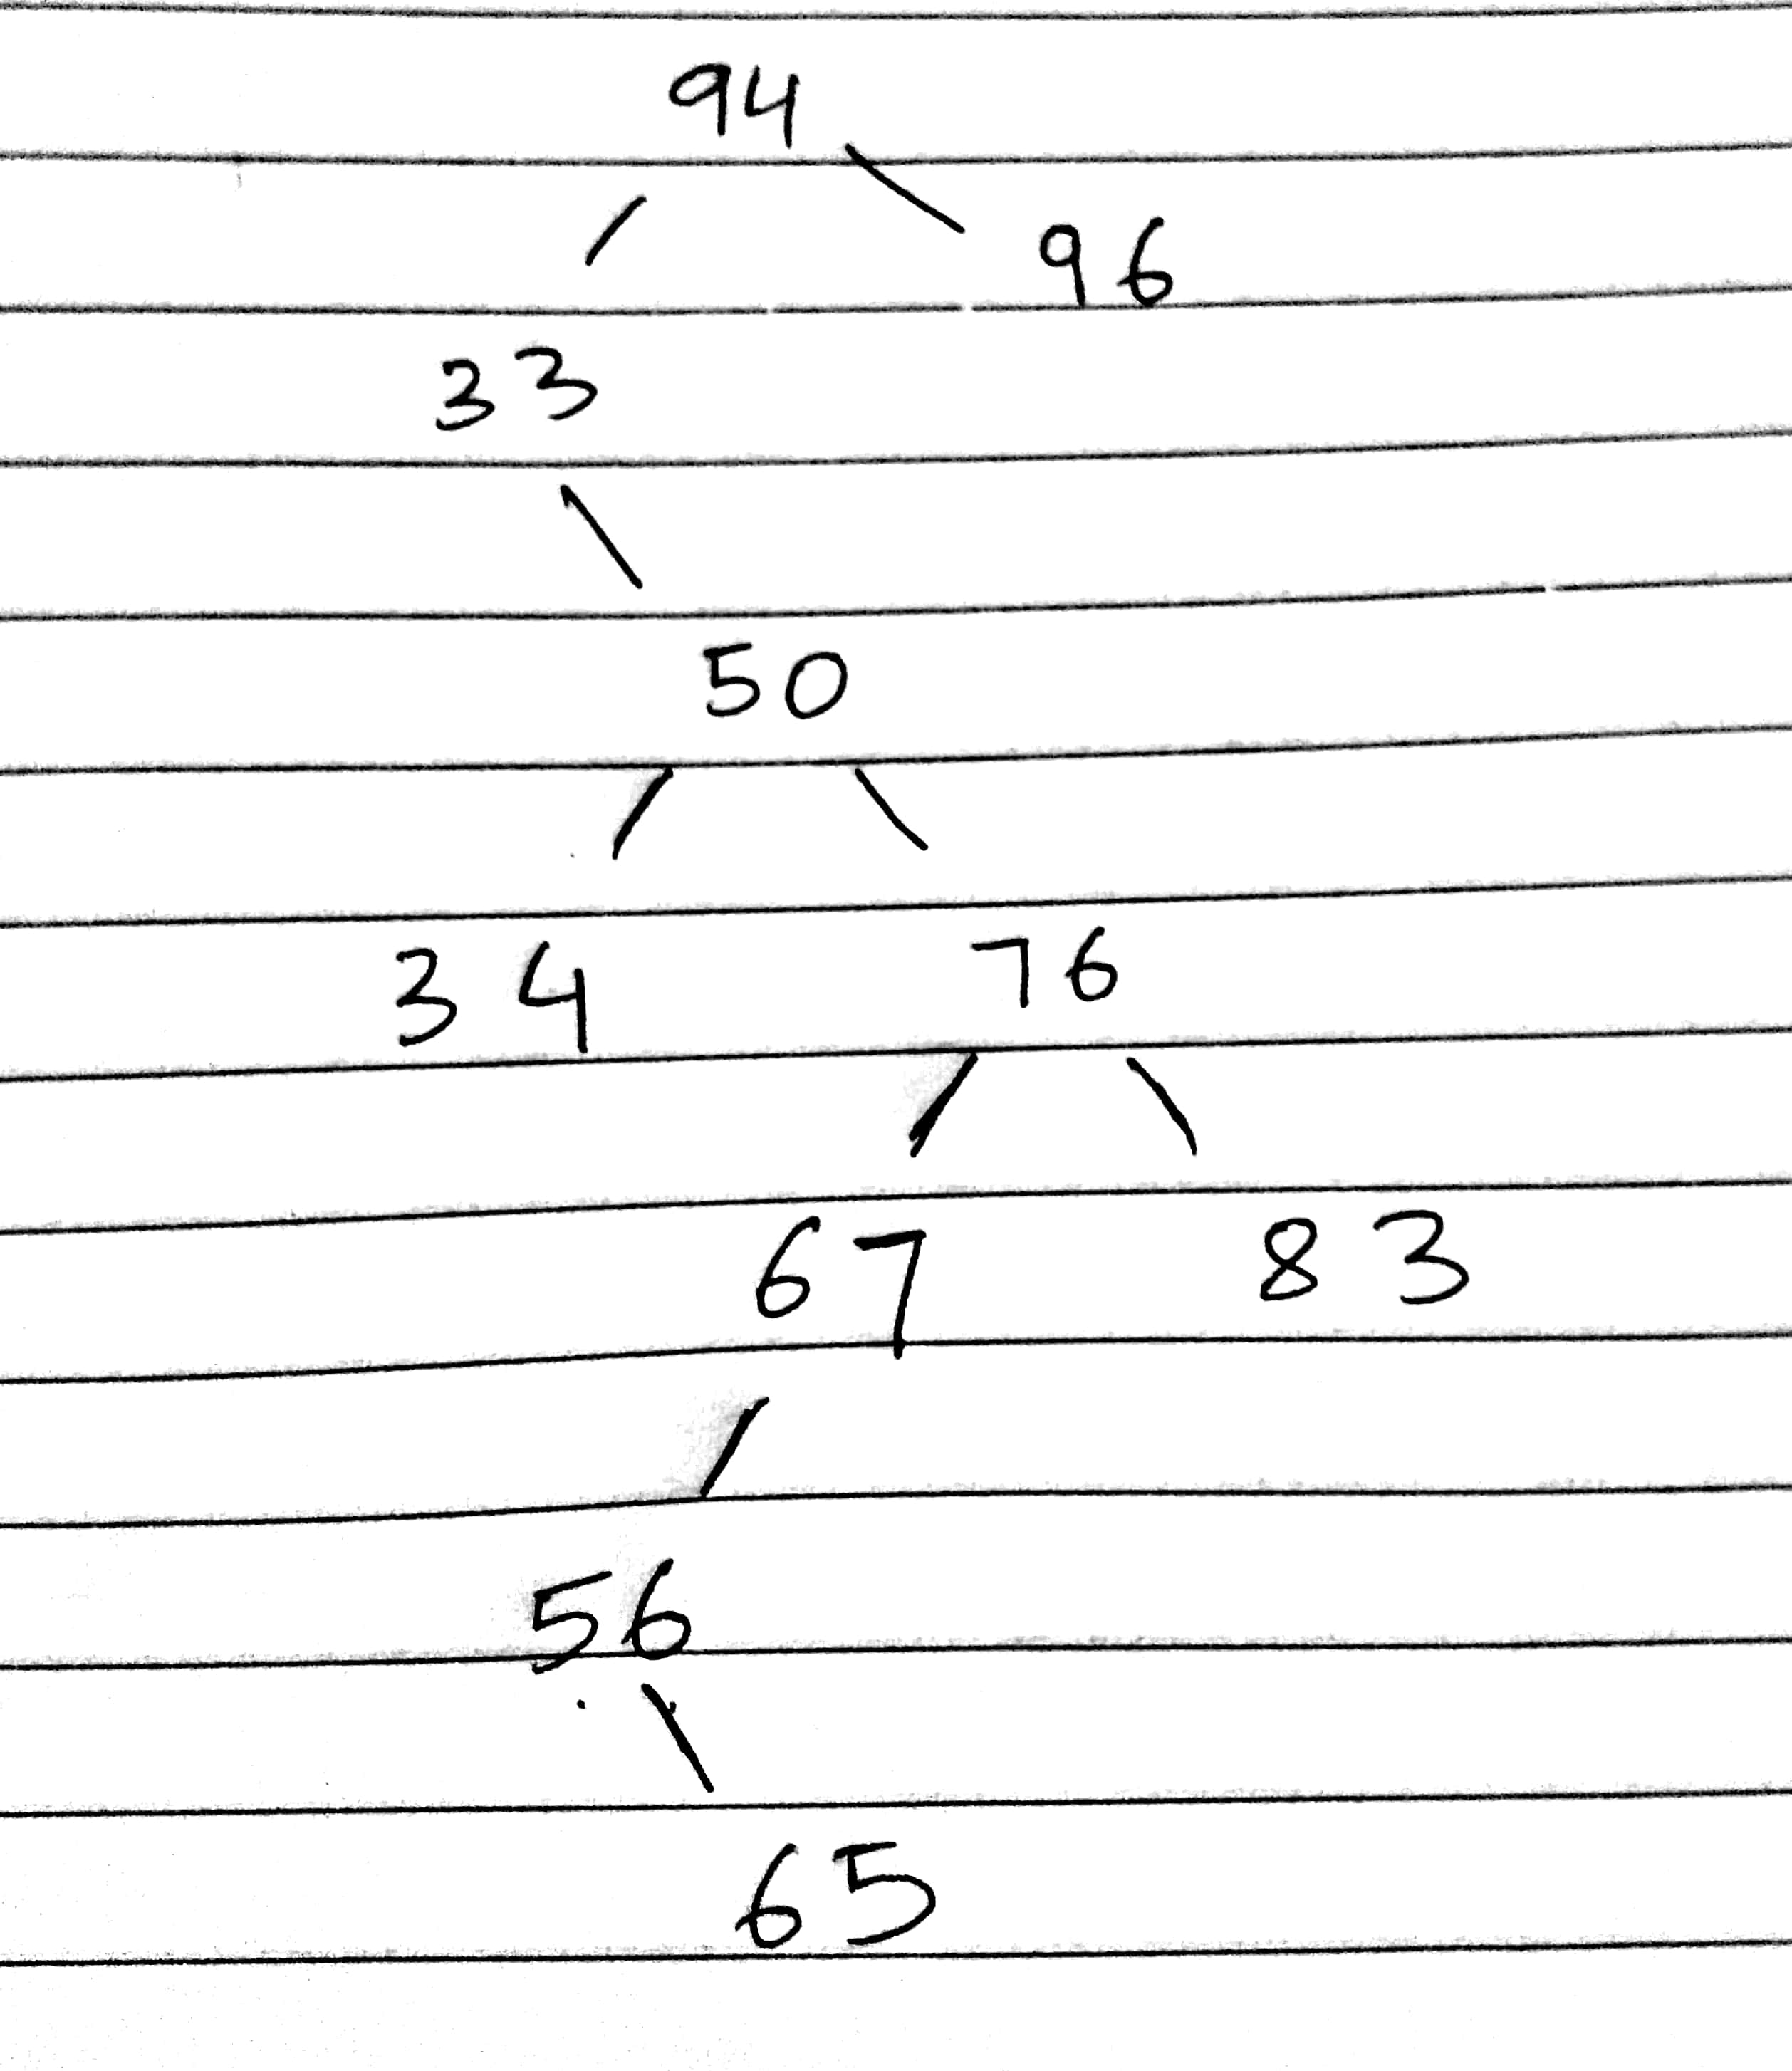 94
96
33
50
34 76
67 83
56
65